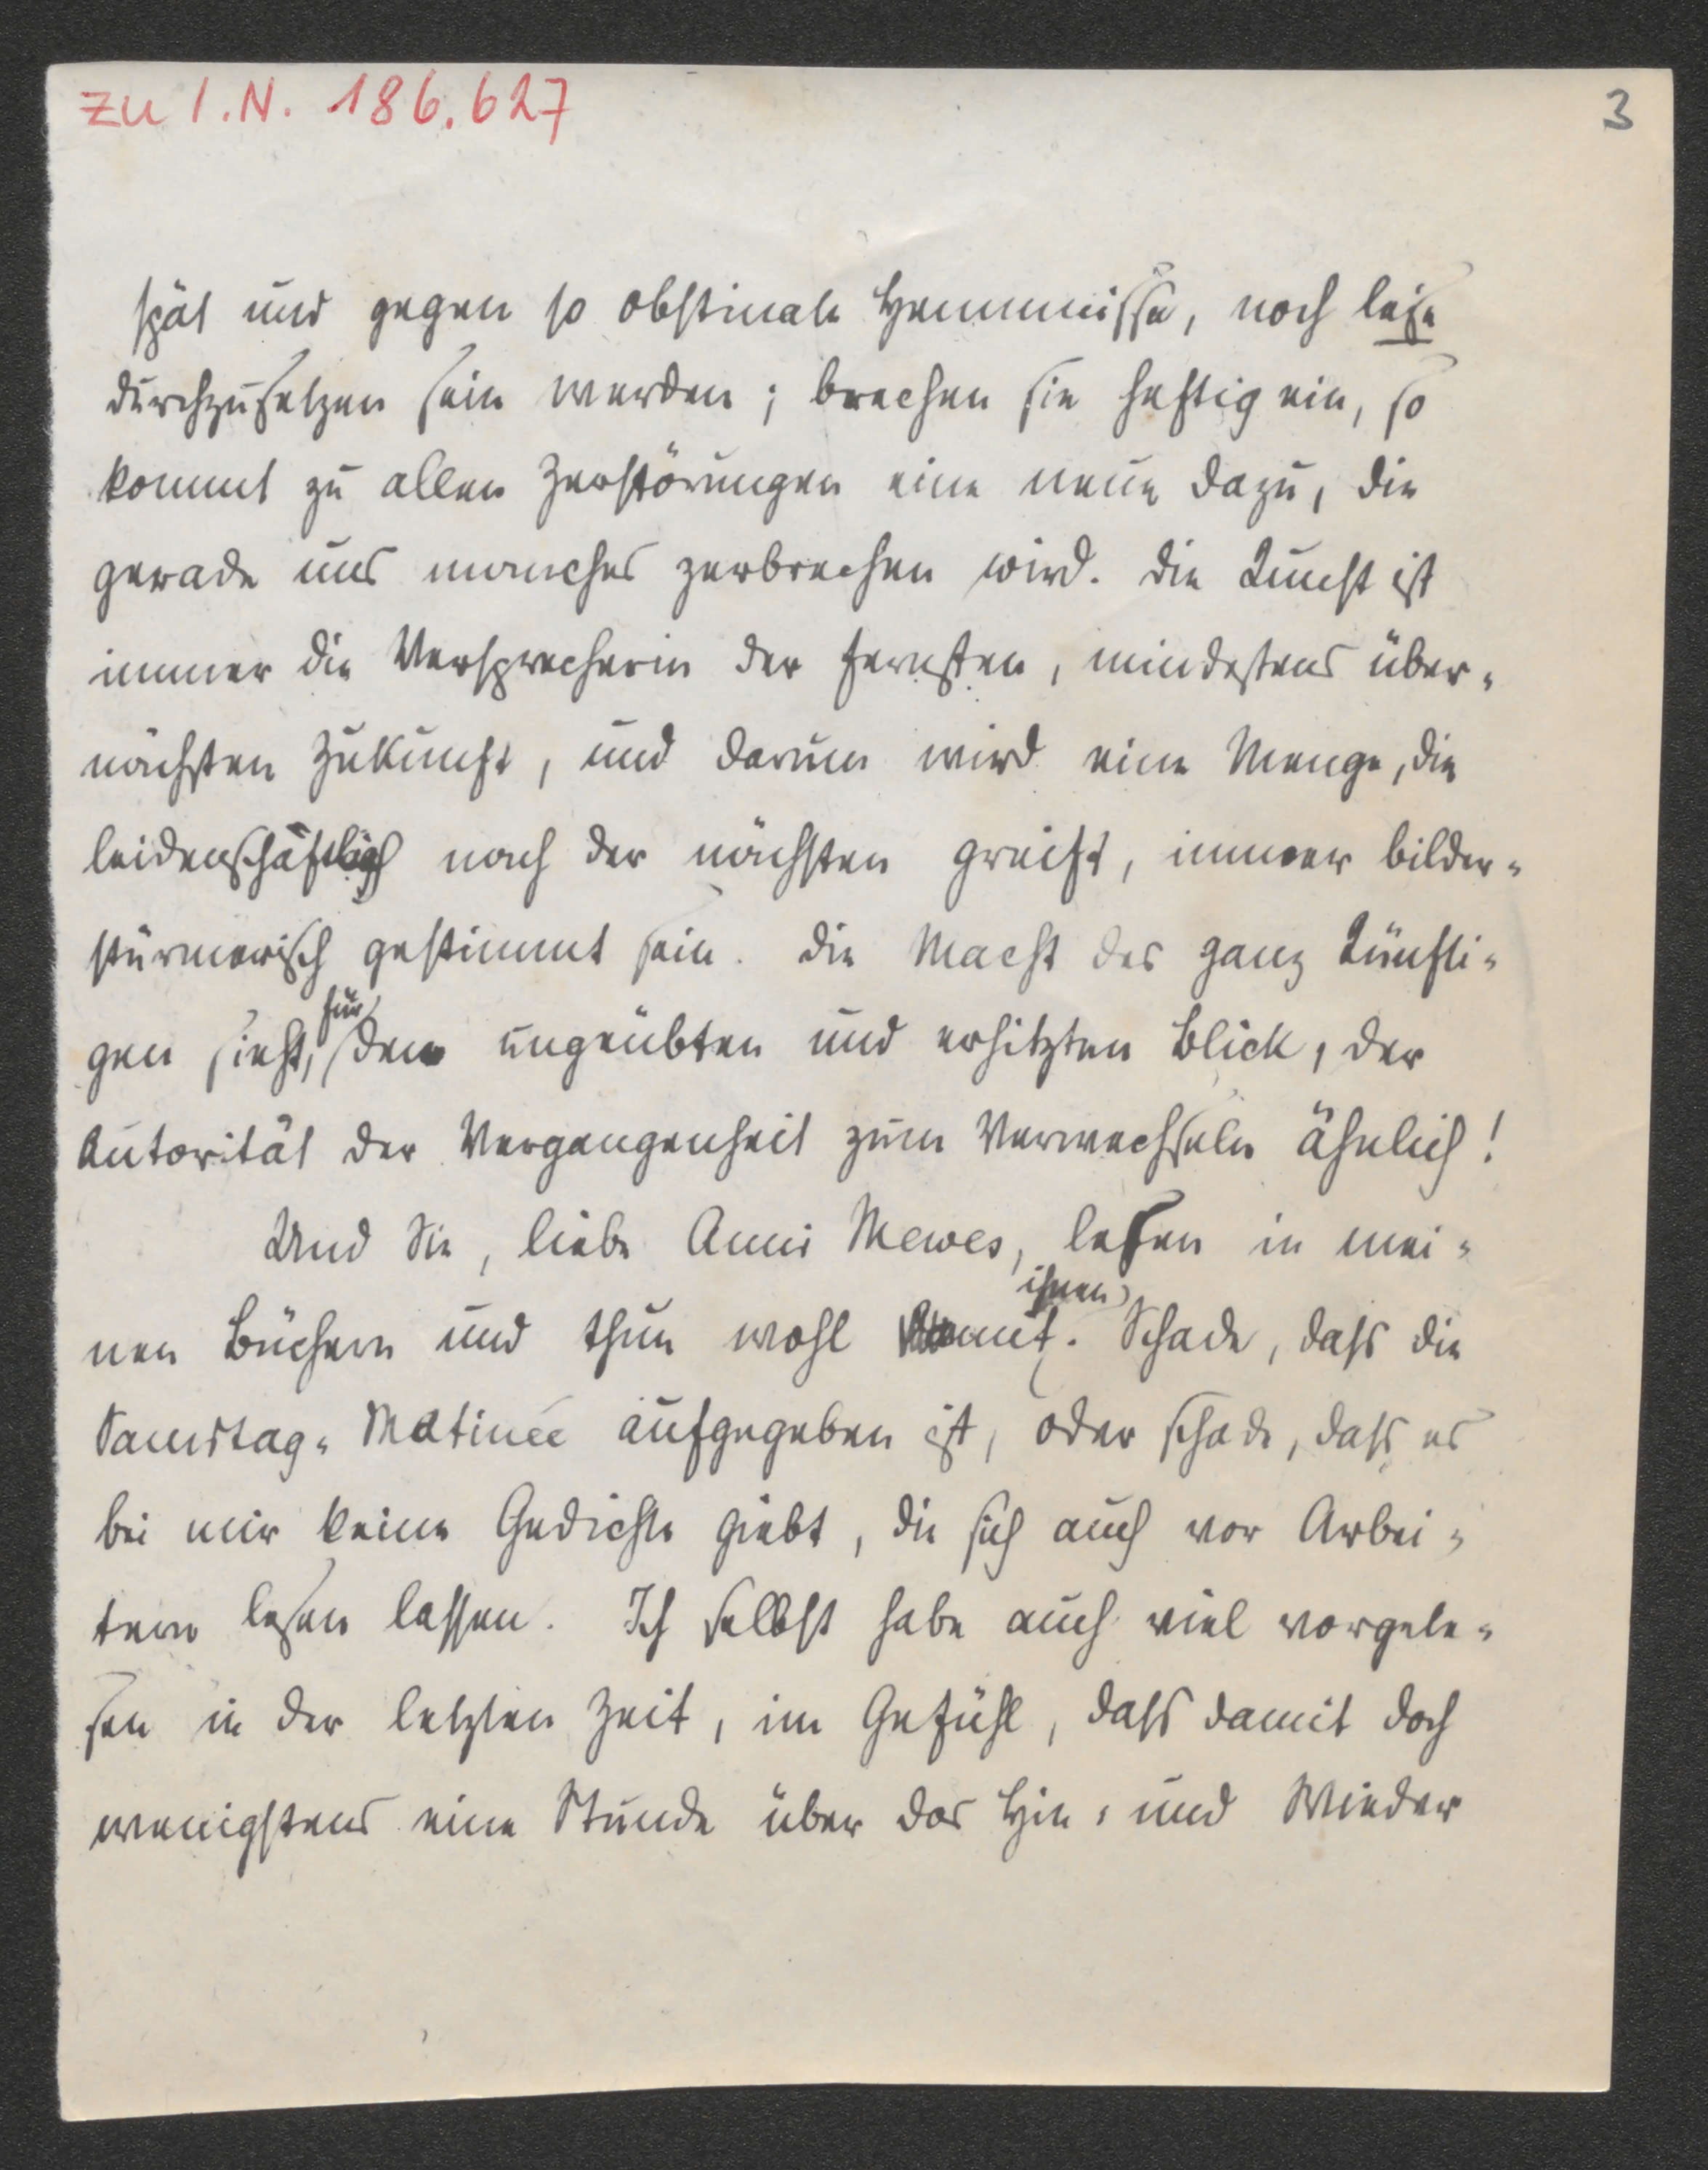 zu I.N. 186.627
3
spät und gegen so obstinate Hemmnisse, noch leise
durchzusetzen sein werden; brechen sie heftig ein, so
kommt zu allen Zerstörungen eine neue dazu, die
gerade uns manches zerbrechen wird. Die Kunst ist
immer die Versprecherin der fernsten, mindestens über-
nächsten Zukunft, und darum wird eine Menge, die
leidenschaftlich nach der nächsten greift, immer bilder-
stürmerisch gestimmt sein. Die Macht des ganz Künfti-
für
gen sieht, den ungeübten und erhitzten Blick, der
Autorität der Vergangenheit zum Verwechseln ähnlich!
Und Sie, liebe Anni Mewes, lesen in mei-
ihnen
nen Büchern und thun wohl mit. Schade, dass die
Samstag-Matinée aufgegeben ist, oder schade, dass es
bei mir keine Gedichte giebt, die sich auch vor Arbei-
tern lesen lassen. Ich selbst habe auch viel vorgele-
sen in der letzten Zeit, im Gefühl, dass damit doch
wenigstens eine Stunde über das Hin- und Wieder